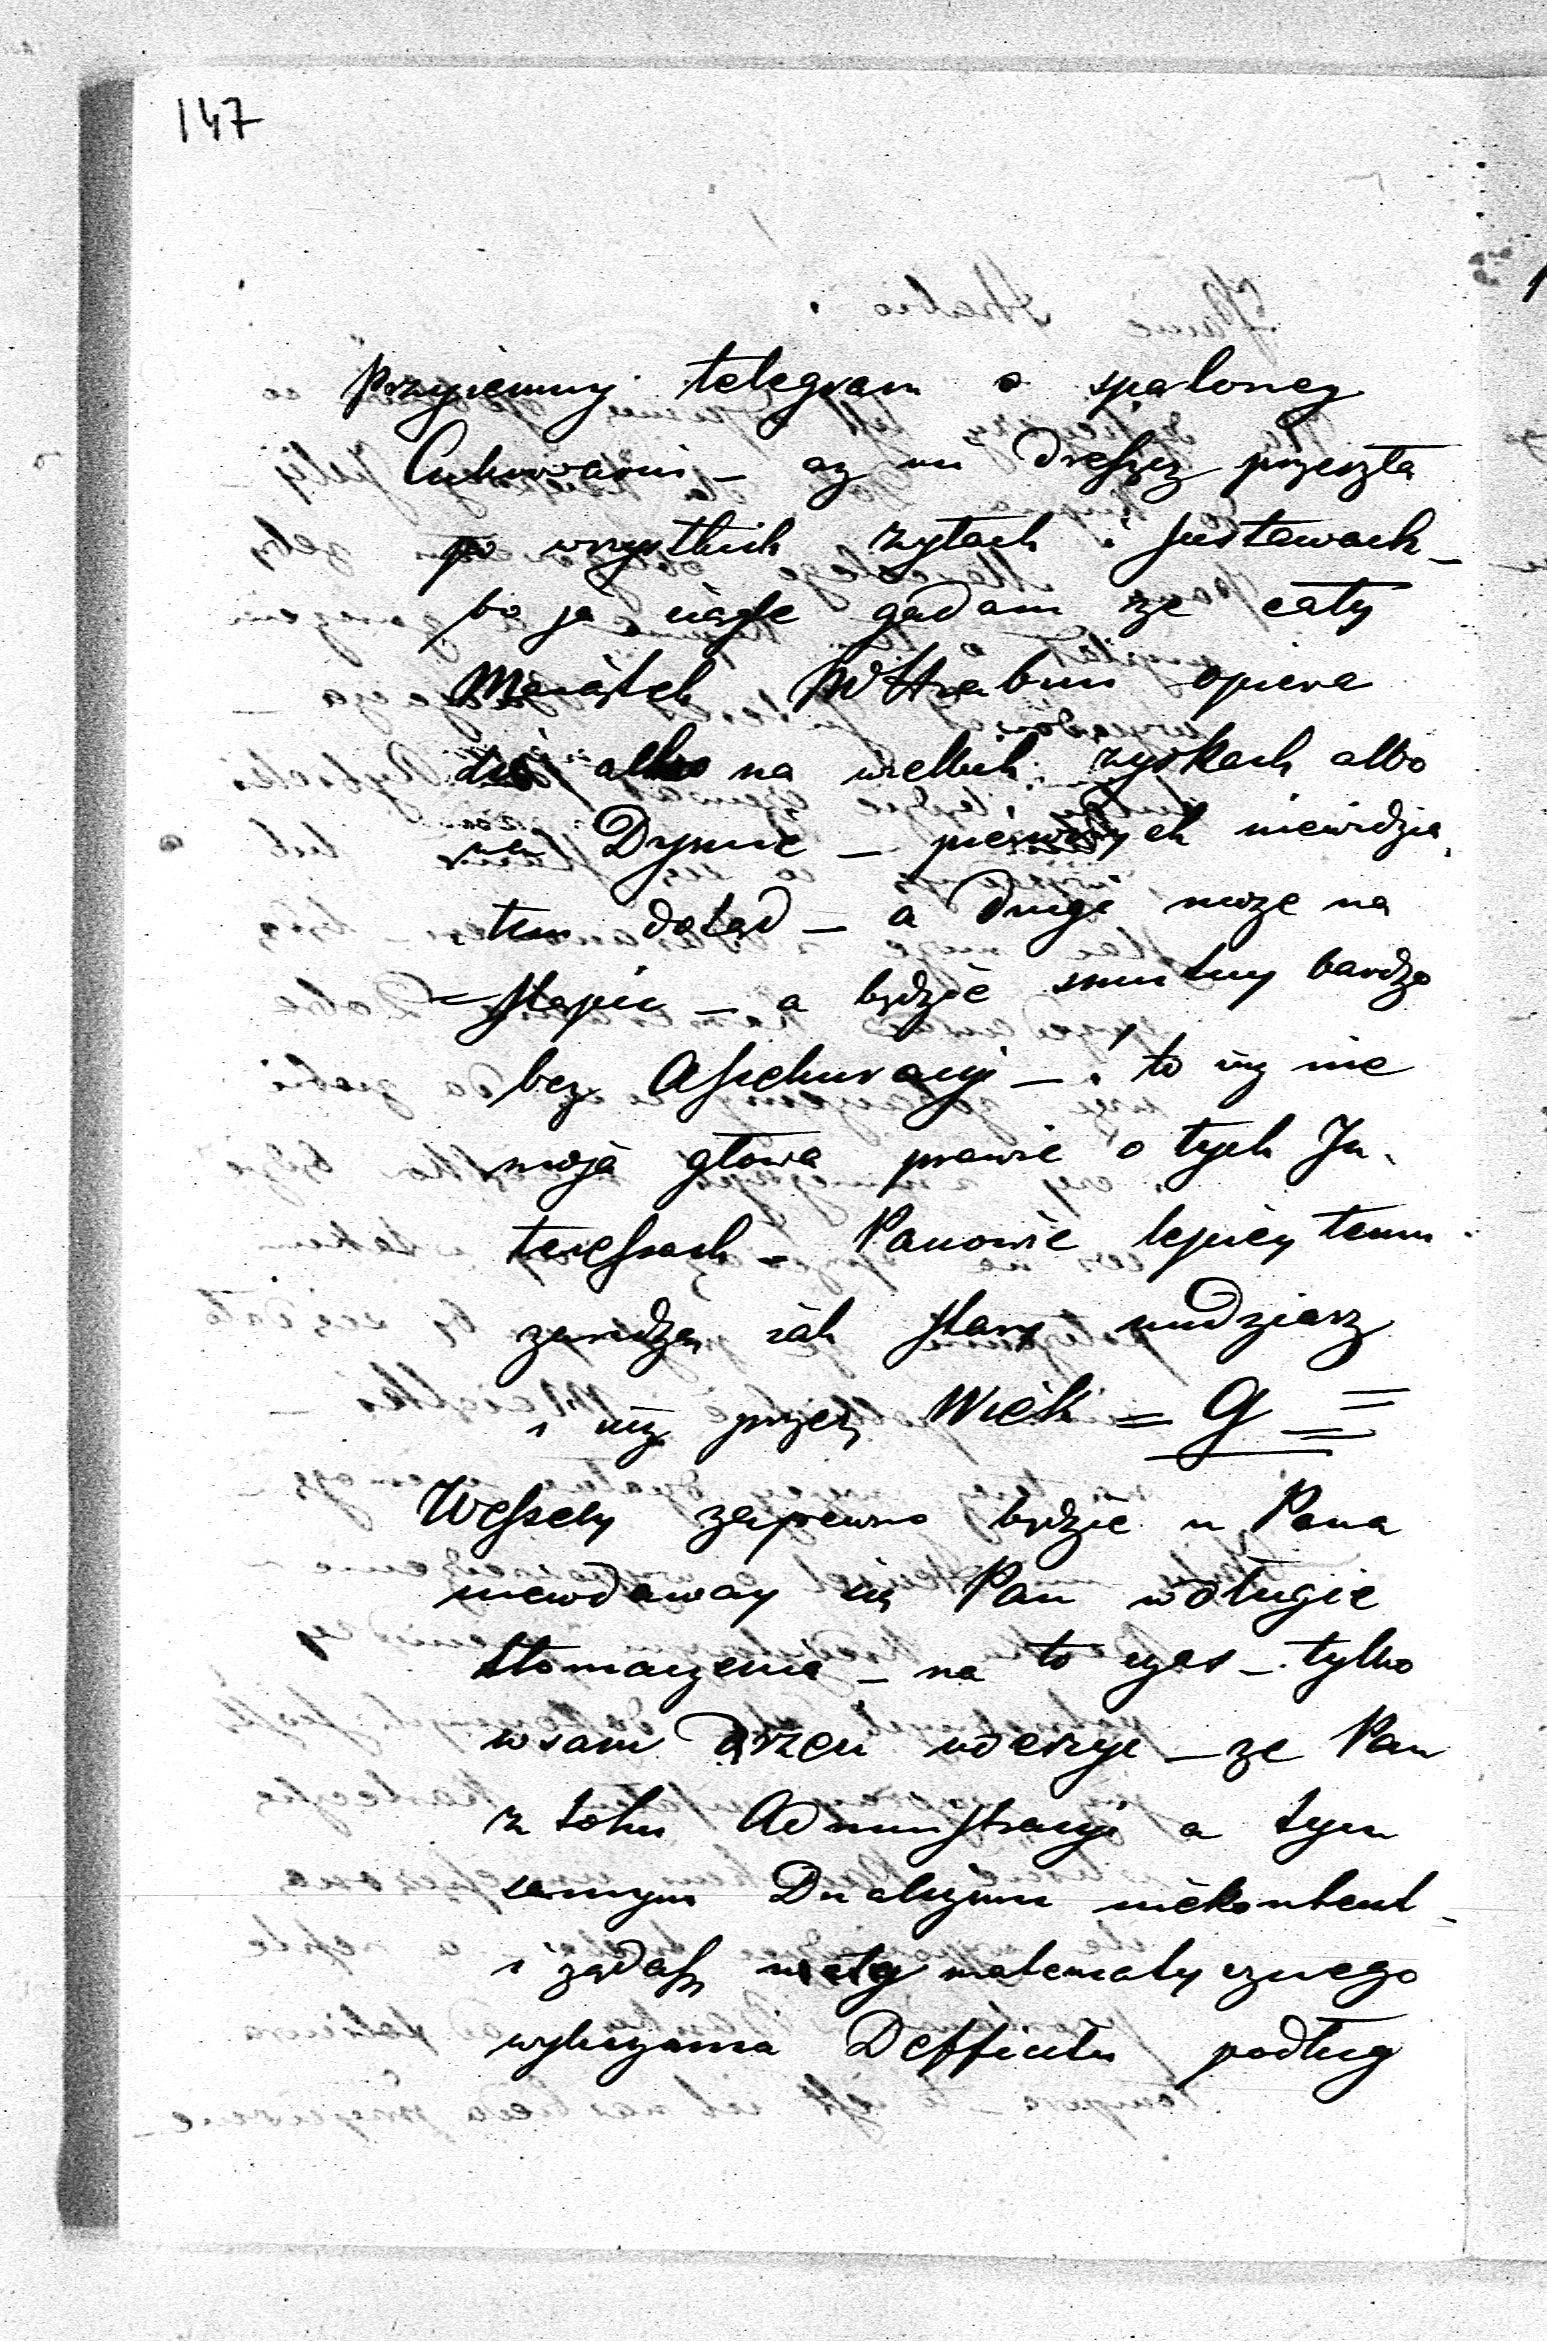 147
przyiemny telegram o spaloney
Cukrowarni – az mi dreszcz przeszła
po wszystkich żyłach i sustawach –
bo ja ciągle gadam ze cały
Maiątek JW Hrabiu opiera
się albo na wielkich zyskach albo
na Dymie – pierwszych niewidzia
łem dotąd – a drugi moze na
stąpić – a będzie smutny bardzo
bez Assekuracyi – i to się nie
moja głowa prawie o tych In
teressach – Panowie lepiey temu
zaradzą iak stary nudziarz
i niż przez Wiek = G =
Wessely zapewno będzie u Pana
niewdaway się Pan w długie
tłomaczenia – na to czas – tylko
w sam drzeń uderzyć – ze Pan
z toku Administracyi a tym
samym Dualizmu niekontent –
i żądasz matematycznego
wyliczania Defficitu podług